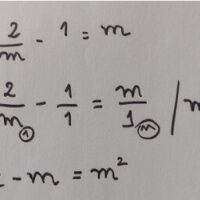 2/m - 1 = m
2/m ① - 1/1 = m/1 ⓜ |
- m = m²